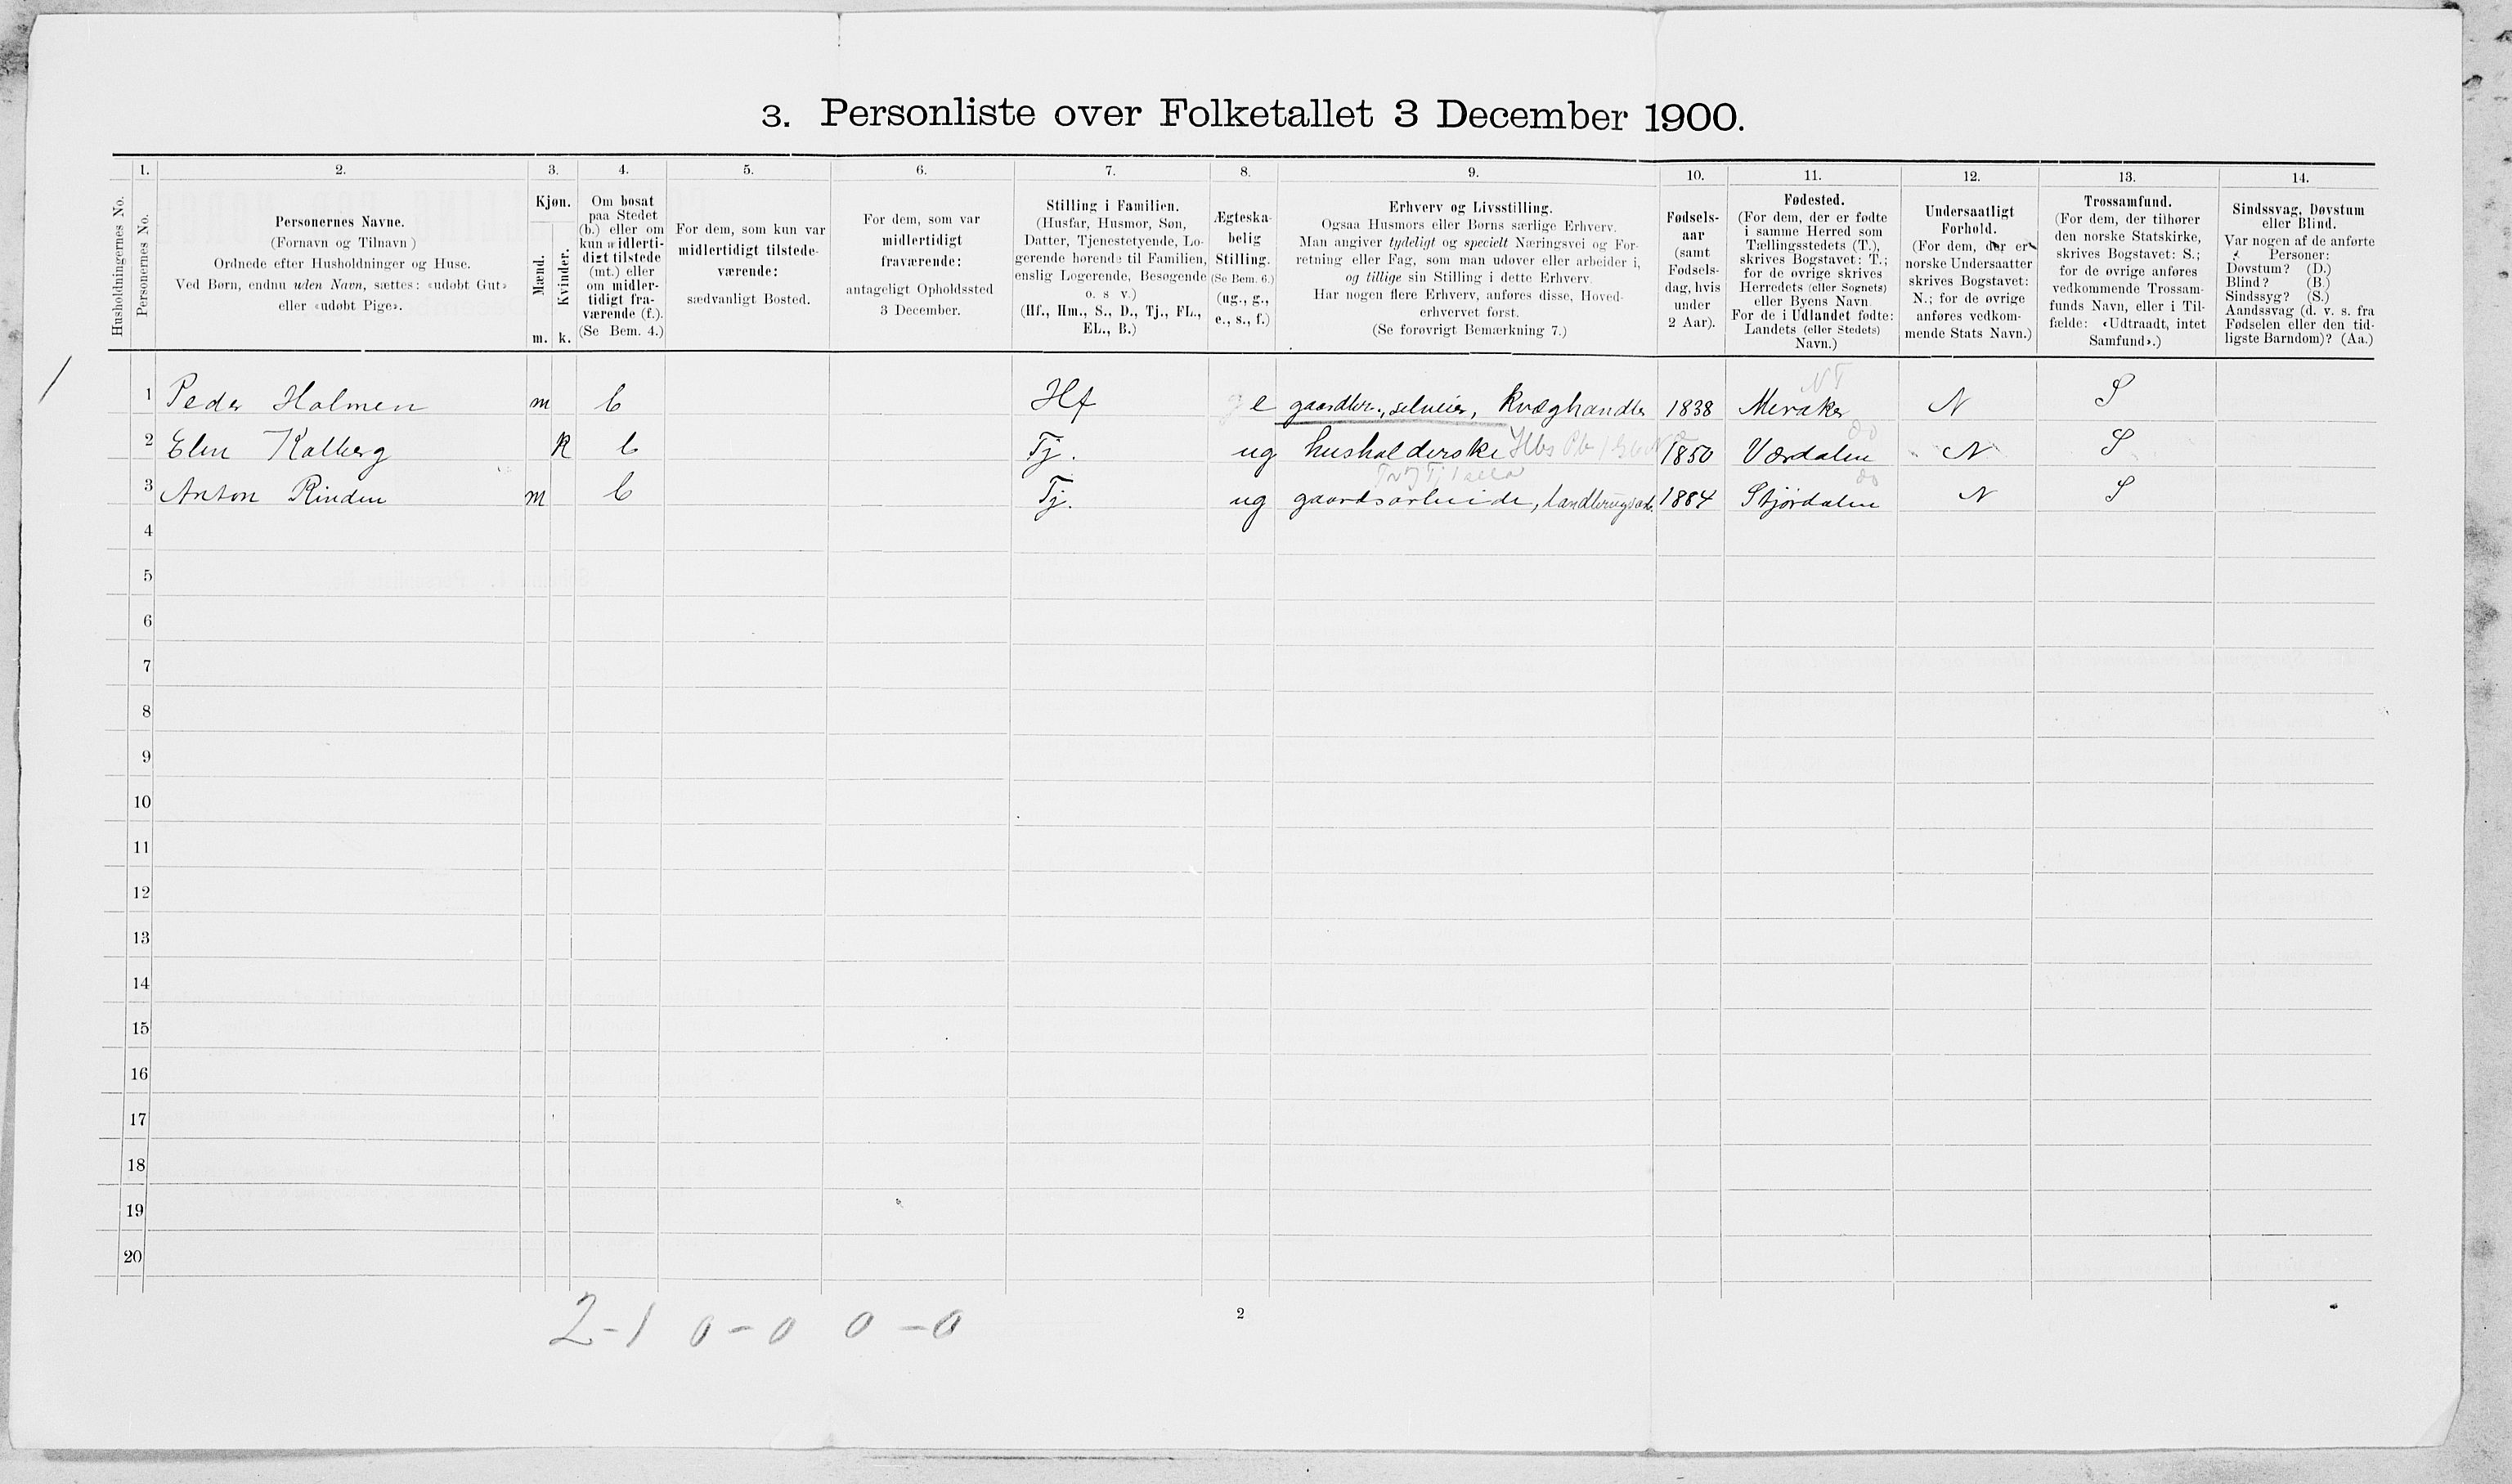 3. Personliste over Folketallet 3 December 1900.
1. 2. 3. 4. 5. 6. 7. 8. 9. 10. 11. 12. 13. 14.
Husholdningernes No.
Personernes No.
Personernes Navne.
(Fornavn og Tilnavn)
Ordnede efter Husholdninger og Huse.
Ved Børn, endnu uden Navn, sættes: «udøbt Gut»
eller «udøbt Pige».
Kjøn.
Mænd.
Kvinder.
m. k.
Om bosat
paa Stedet
(b.) eller om
kun midlerti-
digt tilstede
(mt.) eller
om midler-
tidigt fra-
værende (f.).
(Se Bem. 4.)
For dem, som kun var
midlertidigt tilstede-
værende:
sædvanligt Bosted.
For dem, som var
midlertidigt
fraværende:
antageligt Opholdssted
3 December.
Stilling i Familien.
(Husfar, Husmor, Søn,
Datter, Tjenestetyende, Lo-
gerende hørende til Familien,
enslig Logerende, Besøgende
o. s v.)
(Hf., Hm., S., D., Tj., FL.,
EL., B.)
Ægteska-
belig
Stilling.
(Se Bem. 6.)
(ug., g.,
e., s., f.)
Erhverv og Livsstilling.
Ogsaa Husmors eller Børns særlige Erhverv.
Man angiver tydeligt og specielt Næringsvei og For-
retning eller Fag, som man udøver eller arbeider i,
og tillige sin Stilling i dette Erhverv.
Har nogen flere Erhverv, anføres disse, Hoved-
erhvervet først.
(Se forøvrigt Bemærkning 7.)
Fødsels-
aar
(samt
Fødsels-
dag, hvis
under
2 Aar).
Fødested.
(For dem, der er fødte
i samme Herred som
Tællingsstedets (T.),
skrives Bogstavet: T.;
for de øvrige skrives
Herredets (eller Sognets)
eller Byens Navn.
For de i Udlandet fødte:
Landets (eller Stedets)
Navn.)
Undersaatligt
Forhold.
(For dem, der er
norske Undersaatter
skrives Bogstavet:
N.; for de øvrige
anføres vedkom-
mende Stats Navn.)
Trossamfund.
(For dem, der tilhører
den norske Statskirke,
skrives Bogstavet: S.;
for de øvrige anføres
vedkommende Trossam-
funds Navn, eller i Til-
fælde: «Udtraadt, intet
Samfund».)
Sindssvag, Døvstum
eller Blind.
Var nogen af de anførte
Personer:
Døvstum? (D.)
Blind? (B.)
Sindssyg? (S.)
Aandssvag (d. v. s. fra
Fødselen eller den tid-
ligste Barndom)? (Aa.)
NT
1 Peder Holmen m b Hf e gaardbr., selveier, Kvæghandler 1838 Meraker N S
do
2 Elen Kalberg k b Tj. ug husholderske Hbs 1850 Værdalen N S
do
3 Anton Rinden m b Tj. ug gaardsarbeide, landbrugsarb. 1884 Stjørdalen N S
4
5
6
7
8
9
10
11
12
13
14
15
16
17
18
19
20
2-1 0-0 0-0
2